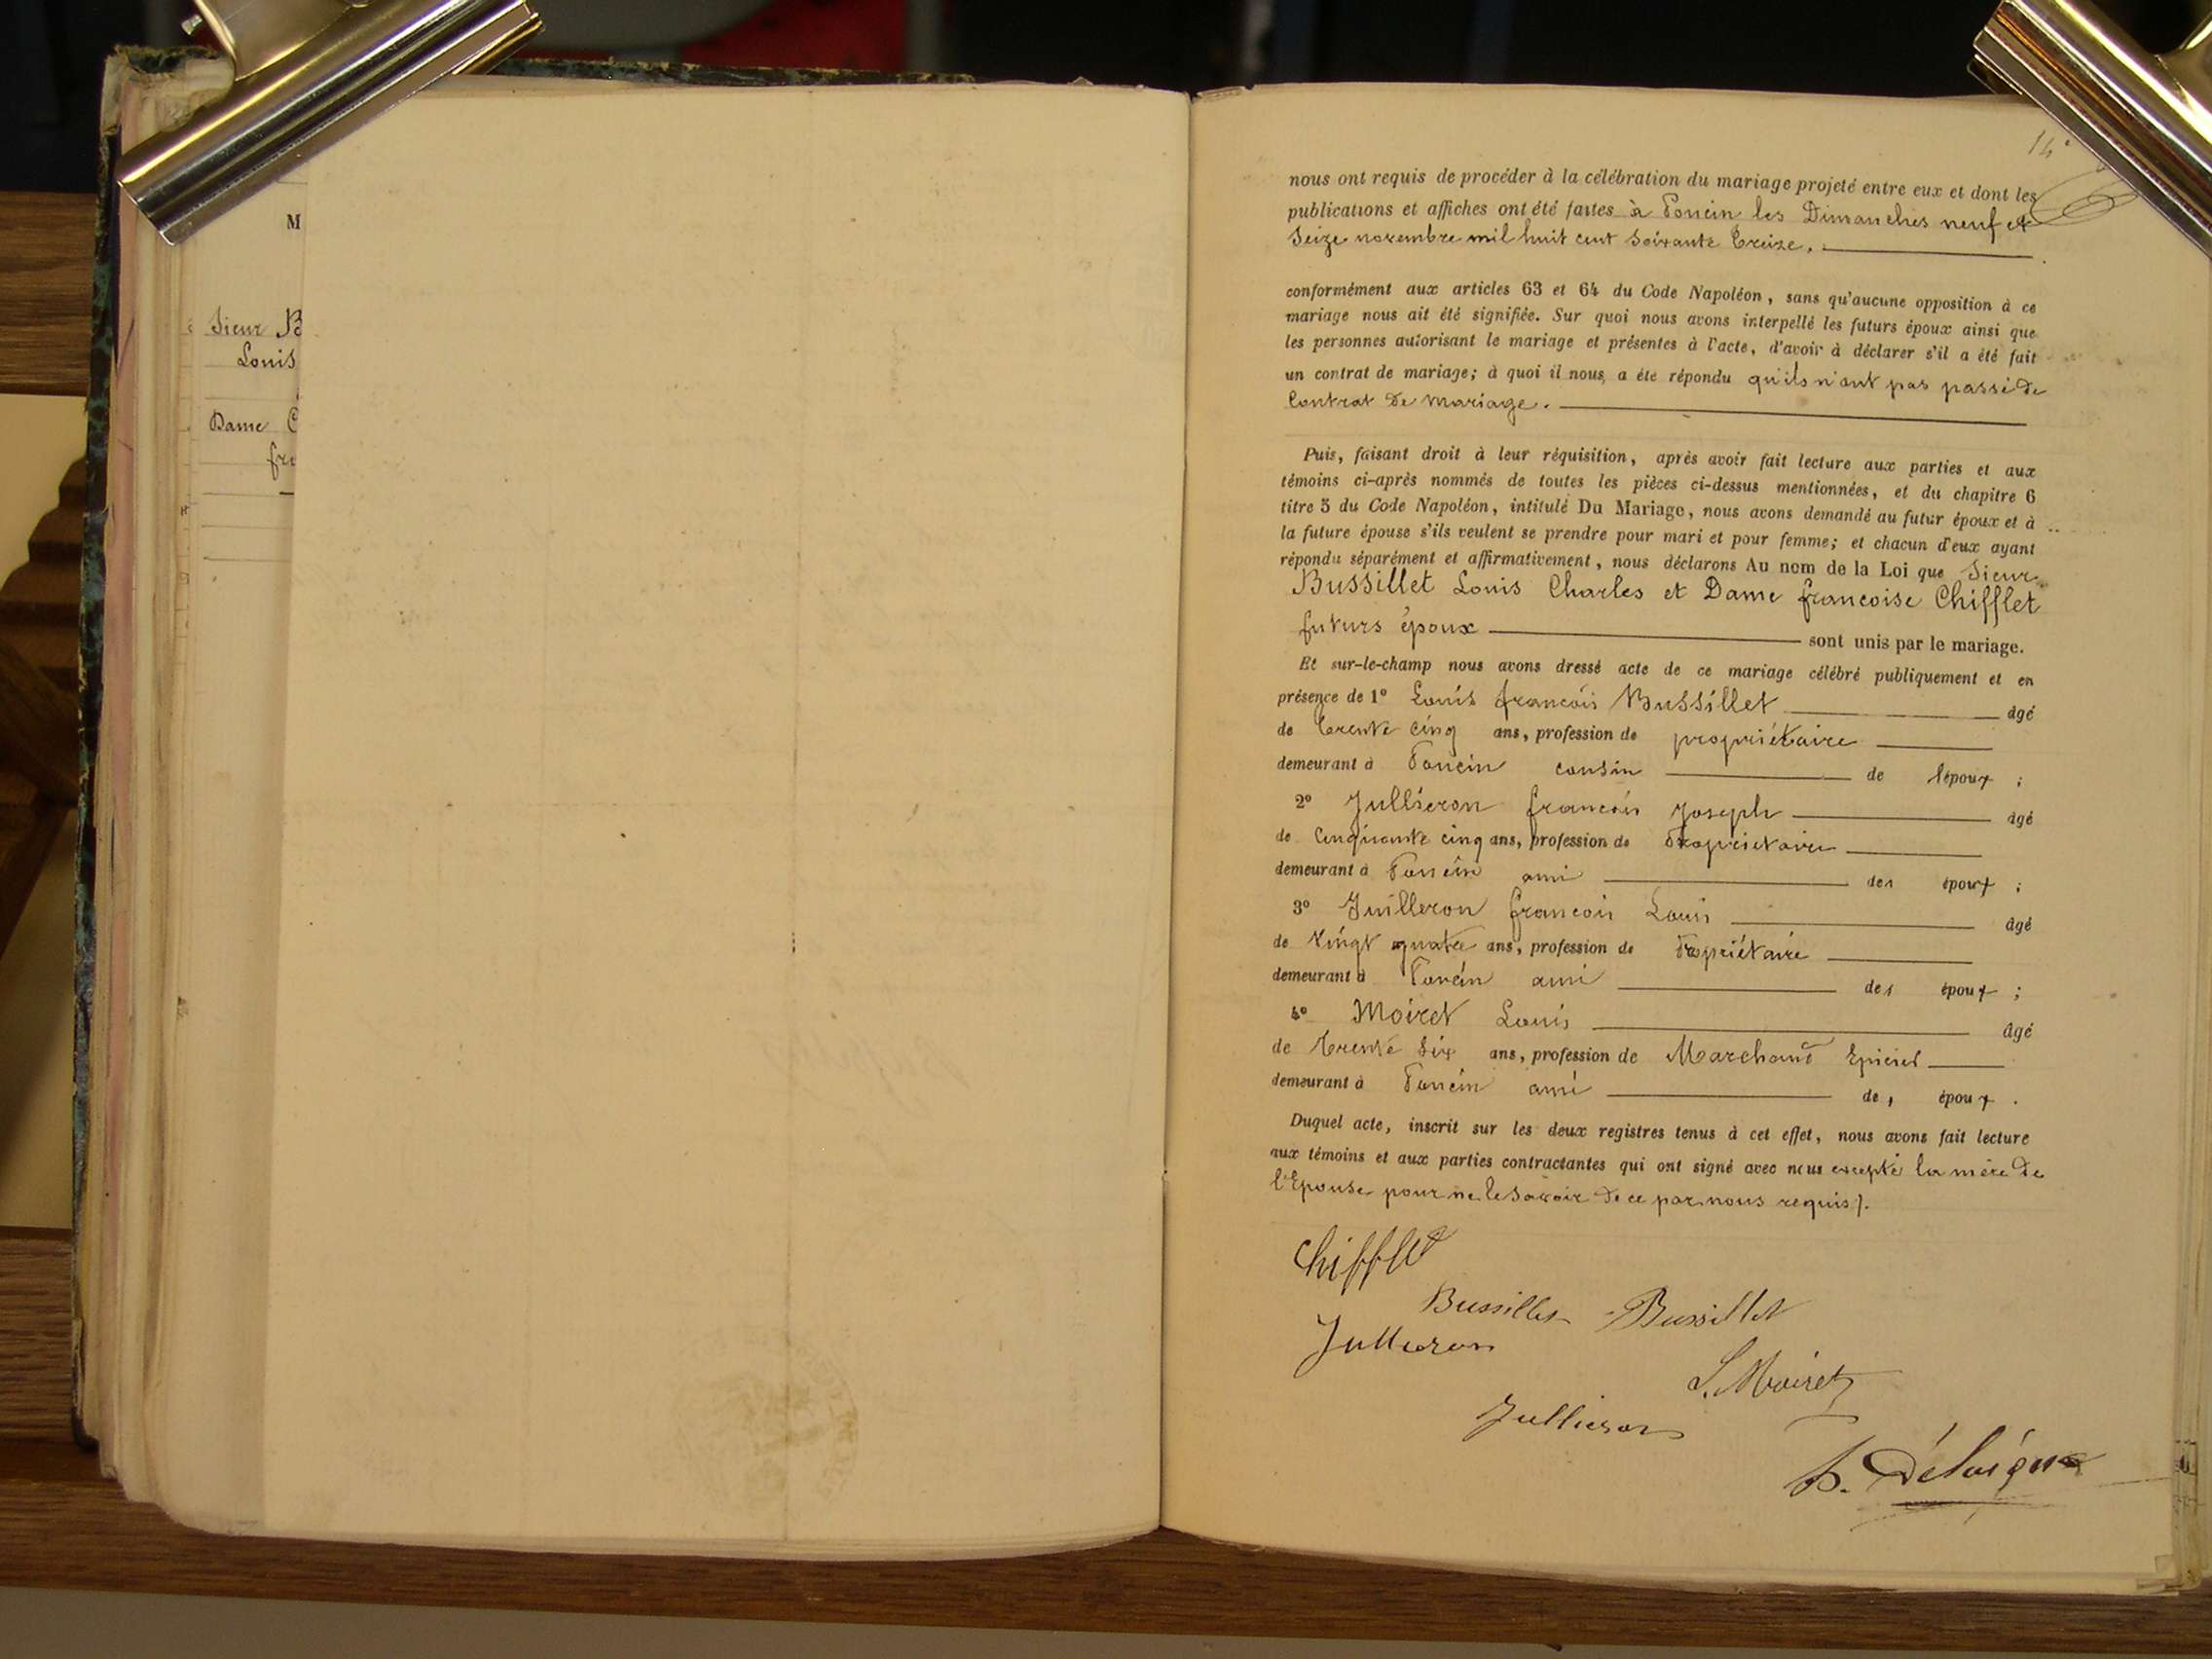 M
Sieur B
Louis
Dame C
fra
14
nous ont requis de procéder à la célébration du mariage projeté entre eux et dont les
publications et affiches ont été faites à Poncin les Dimanches neuf et
Seize novembre mil huit cent soixante Treize.
conformément aux articles 63 et 64 du Code Napoléon, sans qu'aucune opposition à ce
mariage nous ait été signifiée. Sur quoi nous avons interpellé les futurs époux ainsi que
les personnes autorisant le mariage et présentes à l'acte, d'avoir à déclarer s'il a été fait
un contrat de mariage; à quoi il nous a été répondu qu'ils n'ont pas passé de
Contrat de mariage.
Puis, faisant droit à leur réquisition, après avoir fait lecture aux parties et aux
témoins ci-après nommés de toutes les pièces ci-dessus mentionnées, et du chapitre 6
titre 5 du Code Napoléon, intitulé Du Mariage, nous avons demandé au futur époux et à
la future épouse s'ils veulent se prendre pour mari et pour femme; et chacun d'eux ayant
répondu séparément et affirmativement, nous déclarons Au nom de la Loi que Sieur
Bussillet Louis Charles et Dame francoise Chifflet
futurs époux sont unis par le mariage.
Et sur-le-champ nous avons dressé acte de ce mariage célébré publiquement et en
présence de 1º Louis francois Bussillet âgé
de Trente cinq ans, profession de propriétaire
demeurant à Poncin cousin de l'époux ;
2º Jullieron francois Joseph âgé
de Cinquante cinq ans, profession de Propriétaire
demeurant à Poncin ami des époux ;
3º Juilleron francois Louis âgé
de Vingt quatre ans, profession de Propriétaire
demeurant à Poncin ami des époux ;
4º Moiret Louis âgé
de Trente Six ans, profession de Marchand Epicier
demeurant à Poncin ami des époux .
Duquel acte, inscrit sur les deux registres tenus à cet effet, nous avons fait lecture
aux témoins et aux parties contractantes qui ont signé avec nous excepté la mère de
l'Epouse pour ne le savoir de ce par nous requis).
Chifflet
Bussillet Bussillet
Jullieron
L. Moiret
Jullieron